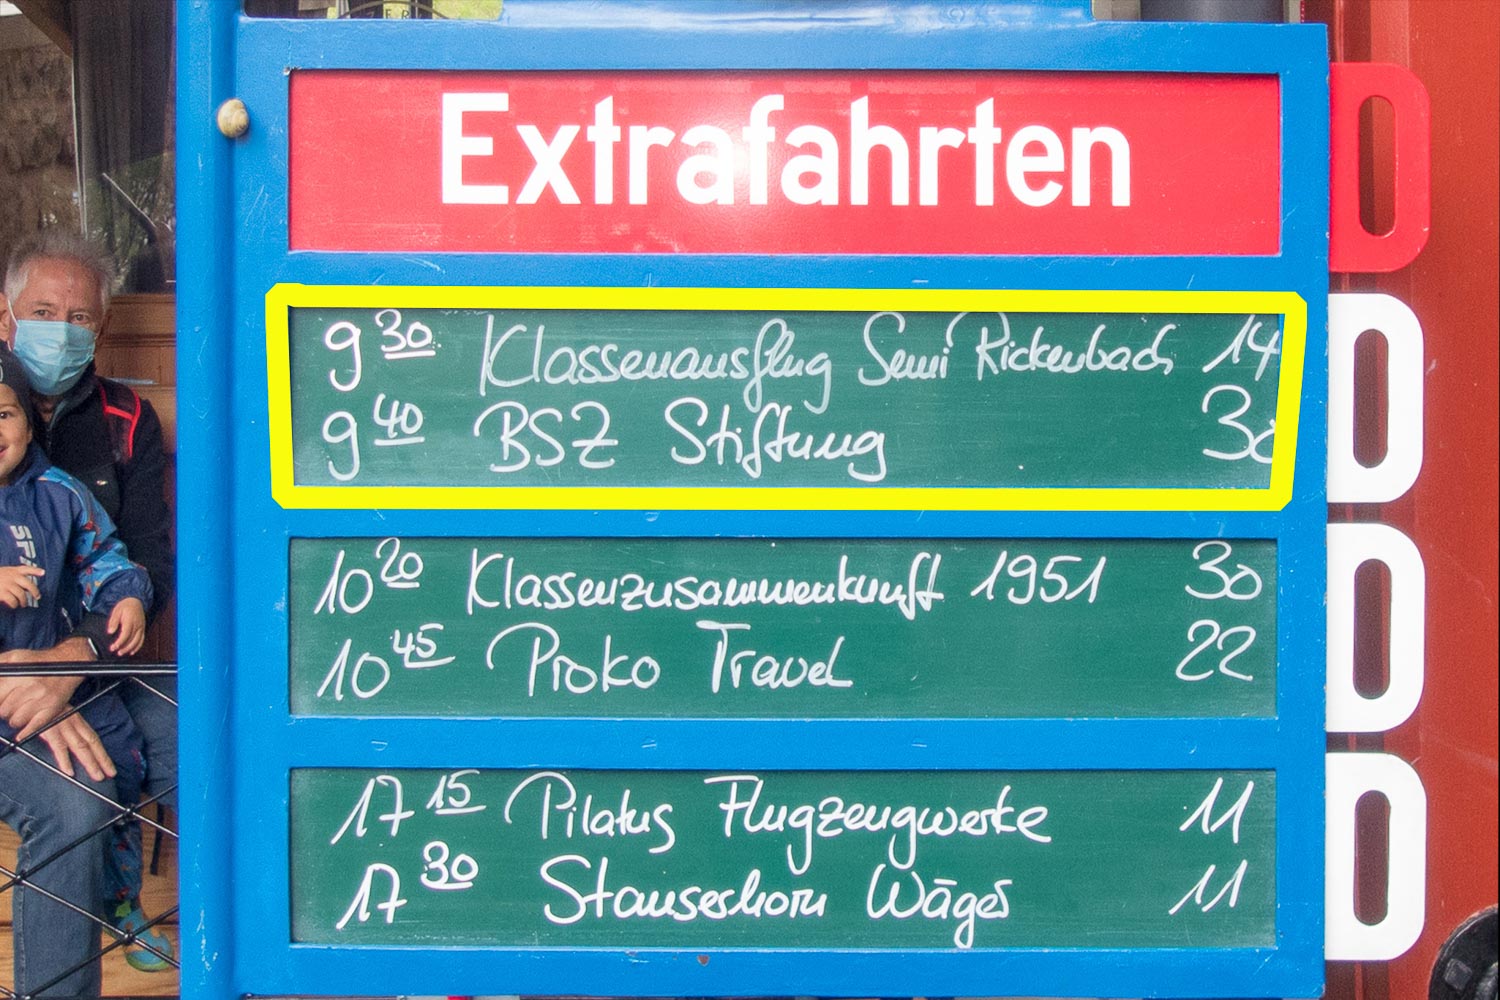 Extrafahrten
9 30 Klassenausflug Semi Rickenbach 14
9 40 BSZ Stiftung 30
10 20 Klassenzusammenkunft 1951 30
10 45 Proko Travel 22
17 15 Pilatus Flugzeugwerke 11
17 30 Stanserhorn Wäger 11